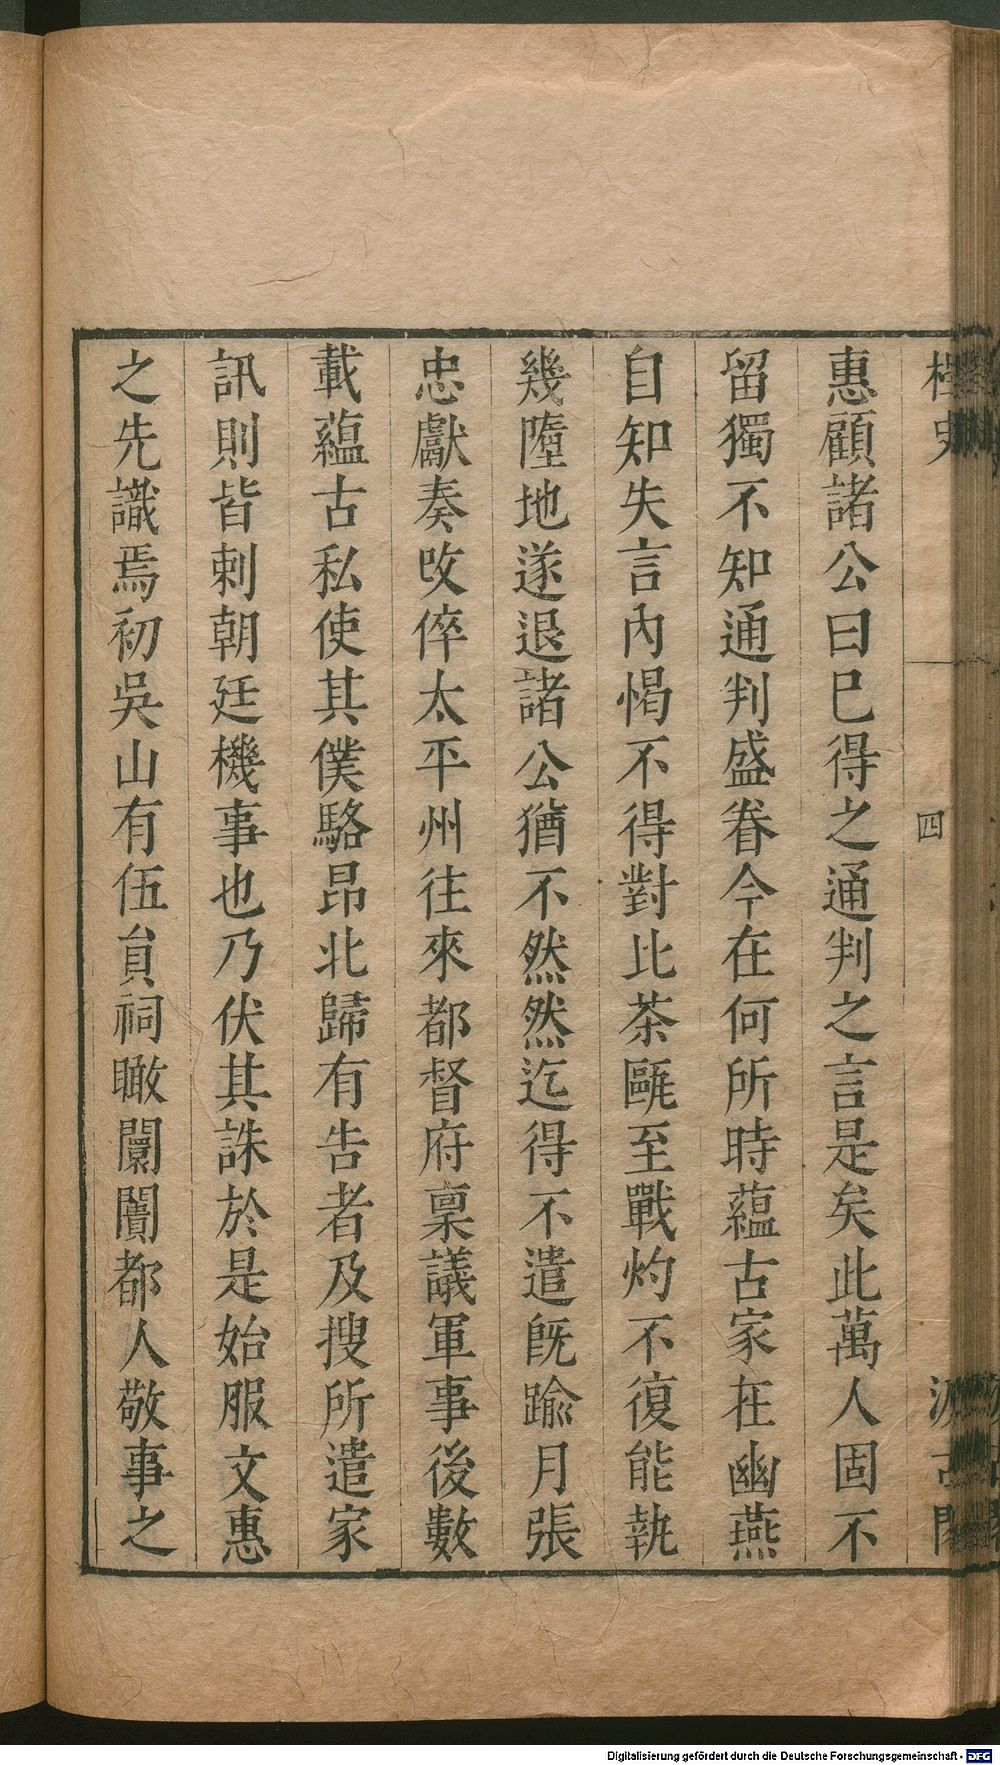 桯史
四
汲古閣
惠顧諸公曰巳得之通判之言是矣此萬人固不
留獨不知通判盛眷今在何所時蘊古家在幽燕
自知失言內惕不得對比茶甌至戰灼不復能執
幾墮地遂退諸公猶不然然迄得不遣旣踰月張
忠獻奏攺倅太平州往來都督府稟議軍事後數
載蘊古私使其僕駱昂北歸有告者及搜所遣家
訊則皆刺朝廷機事也乃伏其誅於是始服文惠
之先識焉初吳山有伍員祠瞰闤闠都人敬事之
Digitalisierung gefördert durch die Deutsche Forschungsgemeinschaft - DFG